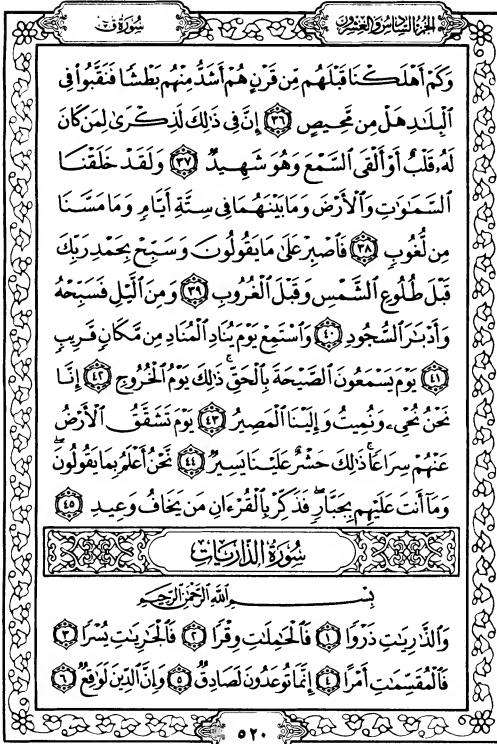 سُورَةُ قٓ
الجُزءُ السَّادِسُ وَالعِشْرُونَ
وَكَمْ أَهْلَكْنَا قَبْلَهُم مِّن قَرْنٍ هُمْ أَشَدُّ مِنْهُم بَطْشًا فَنَقَّبُوا۟ فِى
ٱلْبِلَـٰدِ هَلْ مِن مَّحِيصٍ ٣٦ إِنَّ فِى ذَٰلِكَ لَذِكْرَىٰ لِمَن كَانَ
لَهُۥ قَلْبٌ أَوْ أَلْقَى ٱلسَّمْعَ وَهُوَ شَهِيدٌ ٣٧ وَلَقَدْ خَلَقْنَا
ٱلسَّمَـٰوَٰتِ وَٱلْأَرْضَ وَمَا بَيْنَهُمَا فِى سِتَّةِ أَيَّامٍ وَمَا مَسَّنَا
مِن لُّغُوبٍ ٣٨ فَٱصْبِرْ عَلَىٰ مَا يَقُولُونَ وَسَبِّحْ بِحَمْدِ رَبِّكَ
قَبْلَ طُلُوعِ ٱلشَّمْسِ وَقَبْلَ ٱلْغُرُوبِ ٣٩ وَمِنَ ٱلَّيْلِ فَسَبِّحْهُ
وَأَدْبَـٰرَ ٱلسُّجُودِ ٤٠ وَٱسْتَمِعْ يَوْمَ يُنَادِ ٱلْمُنَادِ مِن مَّكَانٍ قَرِيبٍ
٤١ يَوْمَ يَسْمَعُونَ ٱلصَّيْحَةَ بِٱلْحَقِّ ۚ ذَٰلِكَ يَوْمُ ٱلْخُرُوجِ ٤٢ إِنَّا
نَحْنُ نُحْىِۦ وَنُمِيتُ وَإِلَيْنَا ٱلْمَصِيرُ ٤٣ يَوْمَ تَشَقَّقُ ٱلْأَرْضُ
عَنْهُمْ سِرَاعًا ۚ ذَٰلِكَ حَشْرٌ عَلَيْنَا يَسِيرٌ ٤٤ نَّحْنُ أَعْلَمُ بِمَا يَقُولُونَ ۖ
وَمَآ أَنتَ عَلَيْهِم بِجَبَّارٍ ۖ فَذَكِّرْ بِٱلْقُرْءَانِ مَن يَخَافُ وَعِيدِ ٤٥
سُورَةُ الذَّارِيَاتِ
بِسْمِ ٱللَّهِ ٱلرَّحْمَـٰنِ ٱلرَّحِيمِ
وَٱلذَّٰرِيَـٰتِ ذَرْوًا ١ فَٱلْحَـٰمِلَـٰتِ وِقْرًا ٢ فَٱلْجَـٰرِيَـٰتِ يُسْرًا ٣
فَٱلْمُقَسِّمَـٰتِ أَمْرًا ٤ إِنَّمَا تُوعَدُونَ لَصَادِقٌ ٥ وَإِنَّ ٱلدِّينَ لَوَٰقِعٌ ٦
٥٢٠